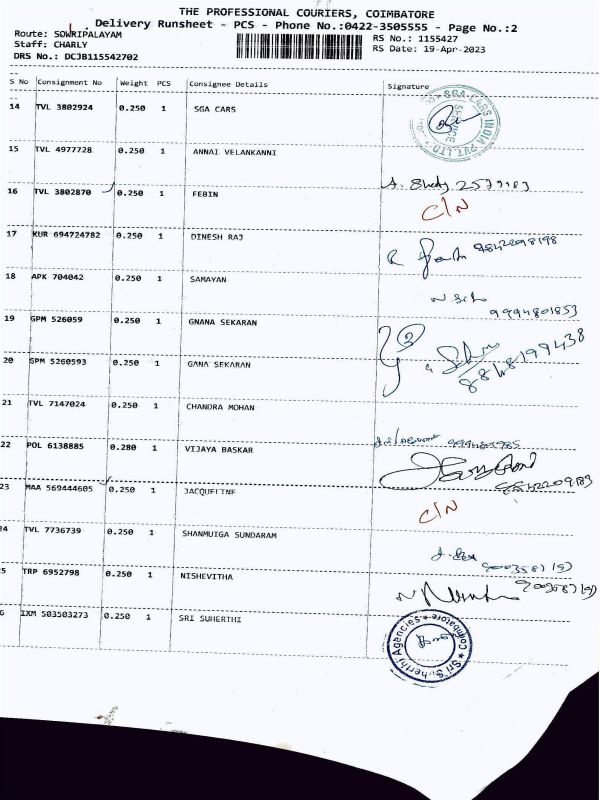 THE PROFESSIONAL COURIERS, COIMBATORE
Delivery Runsheet - PCS - Phone No.:0422-3505555 - Page No.:2
Route: SOWRIPALAYAM RS No.: 1155427
Staff: CHARLY RS Date: 19-Apr-2023
DRS No.: DCJB115542702
S No Consignment No Weight PCS Consignee Details Signature
14 TVL 3802924 0.250 1 SGA CARS SGA CARS INDIA PVT. LTD SERVICE
15 TVL 4977728 0.250 1 ANNAI VELANKANNI
16 TVL 3802870 0.250 1 FEBIN C/N
17 KUR 694724782 0.250 1 DINESH RAJ
18 APK 704042 0.250 1 SAMAYAN
9994801853
19 GPM 526059 0.250 1 GNANA SEKARAN
20 SPM 5260593 0.250 1 GANA SEKARAN 8848199438
21 TVL 7147024 0.250 1 CHANDRA MOHAN
22 POL 6138885 0.280 1 VIJAYA BASKAR
23 MAA 569444605 0.250 1 JACQUELINE C/N
24 TVL 7736739 0.250 1 SHANMUIGA SUNDARAM
5 TRP 6952798 0.250 1 NISHEVITHA
6 IXM 503503273 0.250 1 SRI SUHERTHI Sri Suherthi Agencies Coimbatore